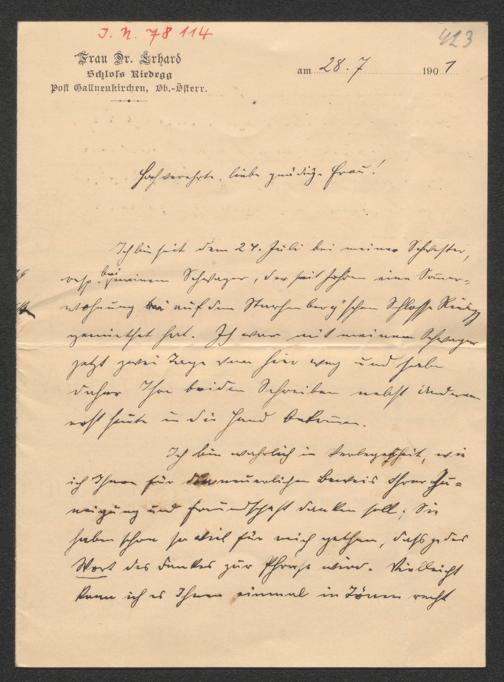 I. N. 78 114
423
Frau Dr. Erhard
Schloss Riedegg
Post Gallneukirchen, Ob.-Österr.
am 28. 7 1901
Hochverehrte, liebe gnädige Frau!
Ich bin seit dem 24. Juli bei meiner Schwester,
resp. bei meinem Schwager, der seit Jahren eine Sommer-
wohnung auf dem Starhemberg'schen Schlosse Riedegg
gemiethet hat. Ich war mit meinem Schwager
jetzt zwei Tage von hier weg und habe
daher Ihre beiden Schreiben nebst Anderem
erst heute in die Hand bekommen.
Ich bin wahrlich in Verlegenheit, wie
ich Ihnen für den neuerlichen Beweis Ihrer Zu-
neigung und Freundschaft danken soll; Sie
haben schon so viel für mich gethan, dass jedes
Wort des Dankes zur Phrase wird. Vielleicht
kann ich es Ihnen einmal in Tönen recht